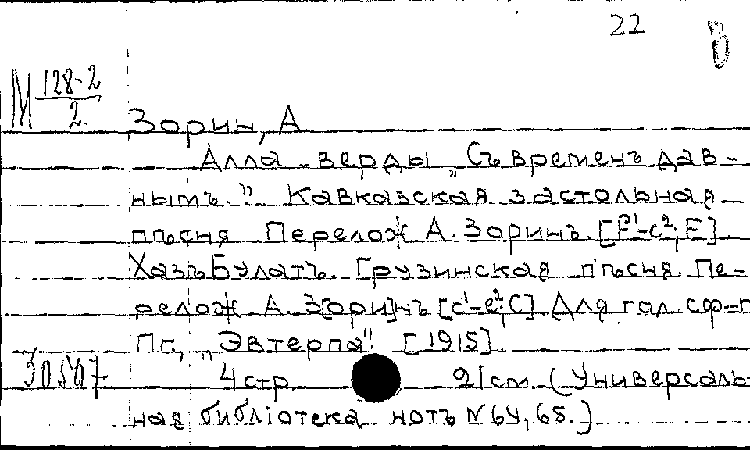 22 В
М 128-2/2.
Зорин, А
Алла-верды „Съ временъ дав-
нымъ." Кавказская застольная
пѣсня Перелож А. Зоринъ [f¹-c²; F].
Хазъ Булатъ. Грузинская пѣсня Пе-
релож А. З[ори]нъ [c¹-e²; C] Для гол. с ф-п
Пг., „Эвтерпа". [1915].
30507 4 стр. 27 см. (Универсаль-
ная библіотека нотъ N 64, 65.)